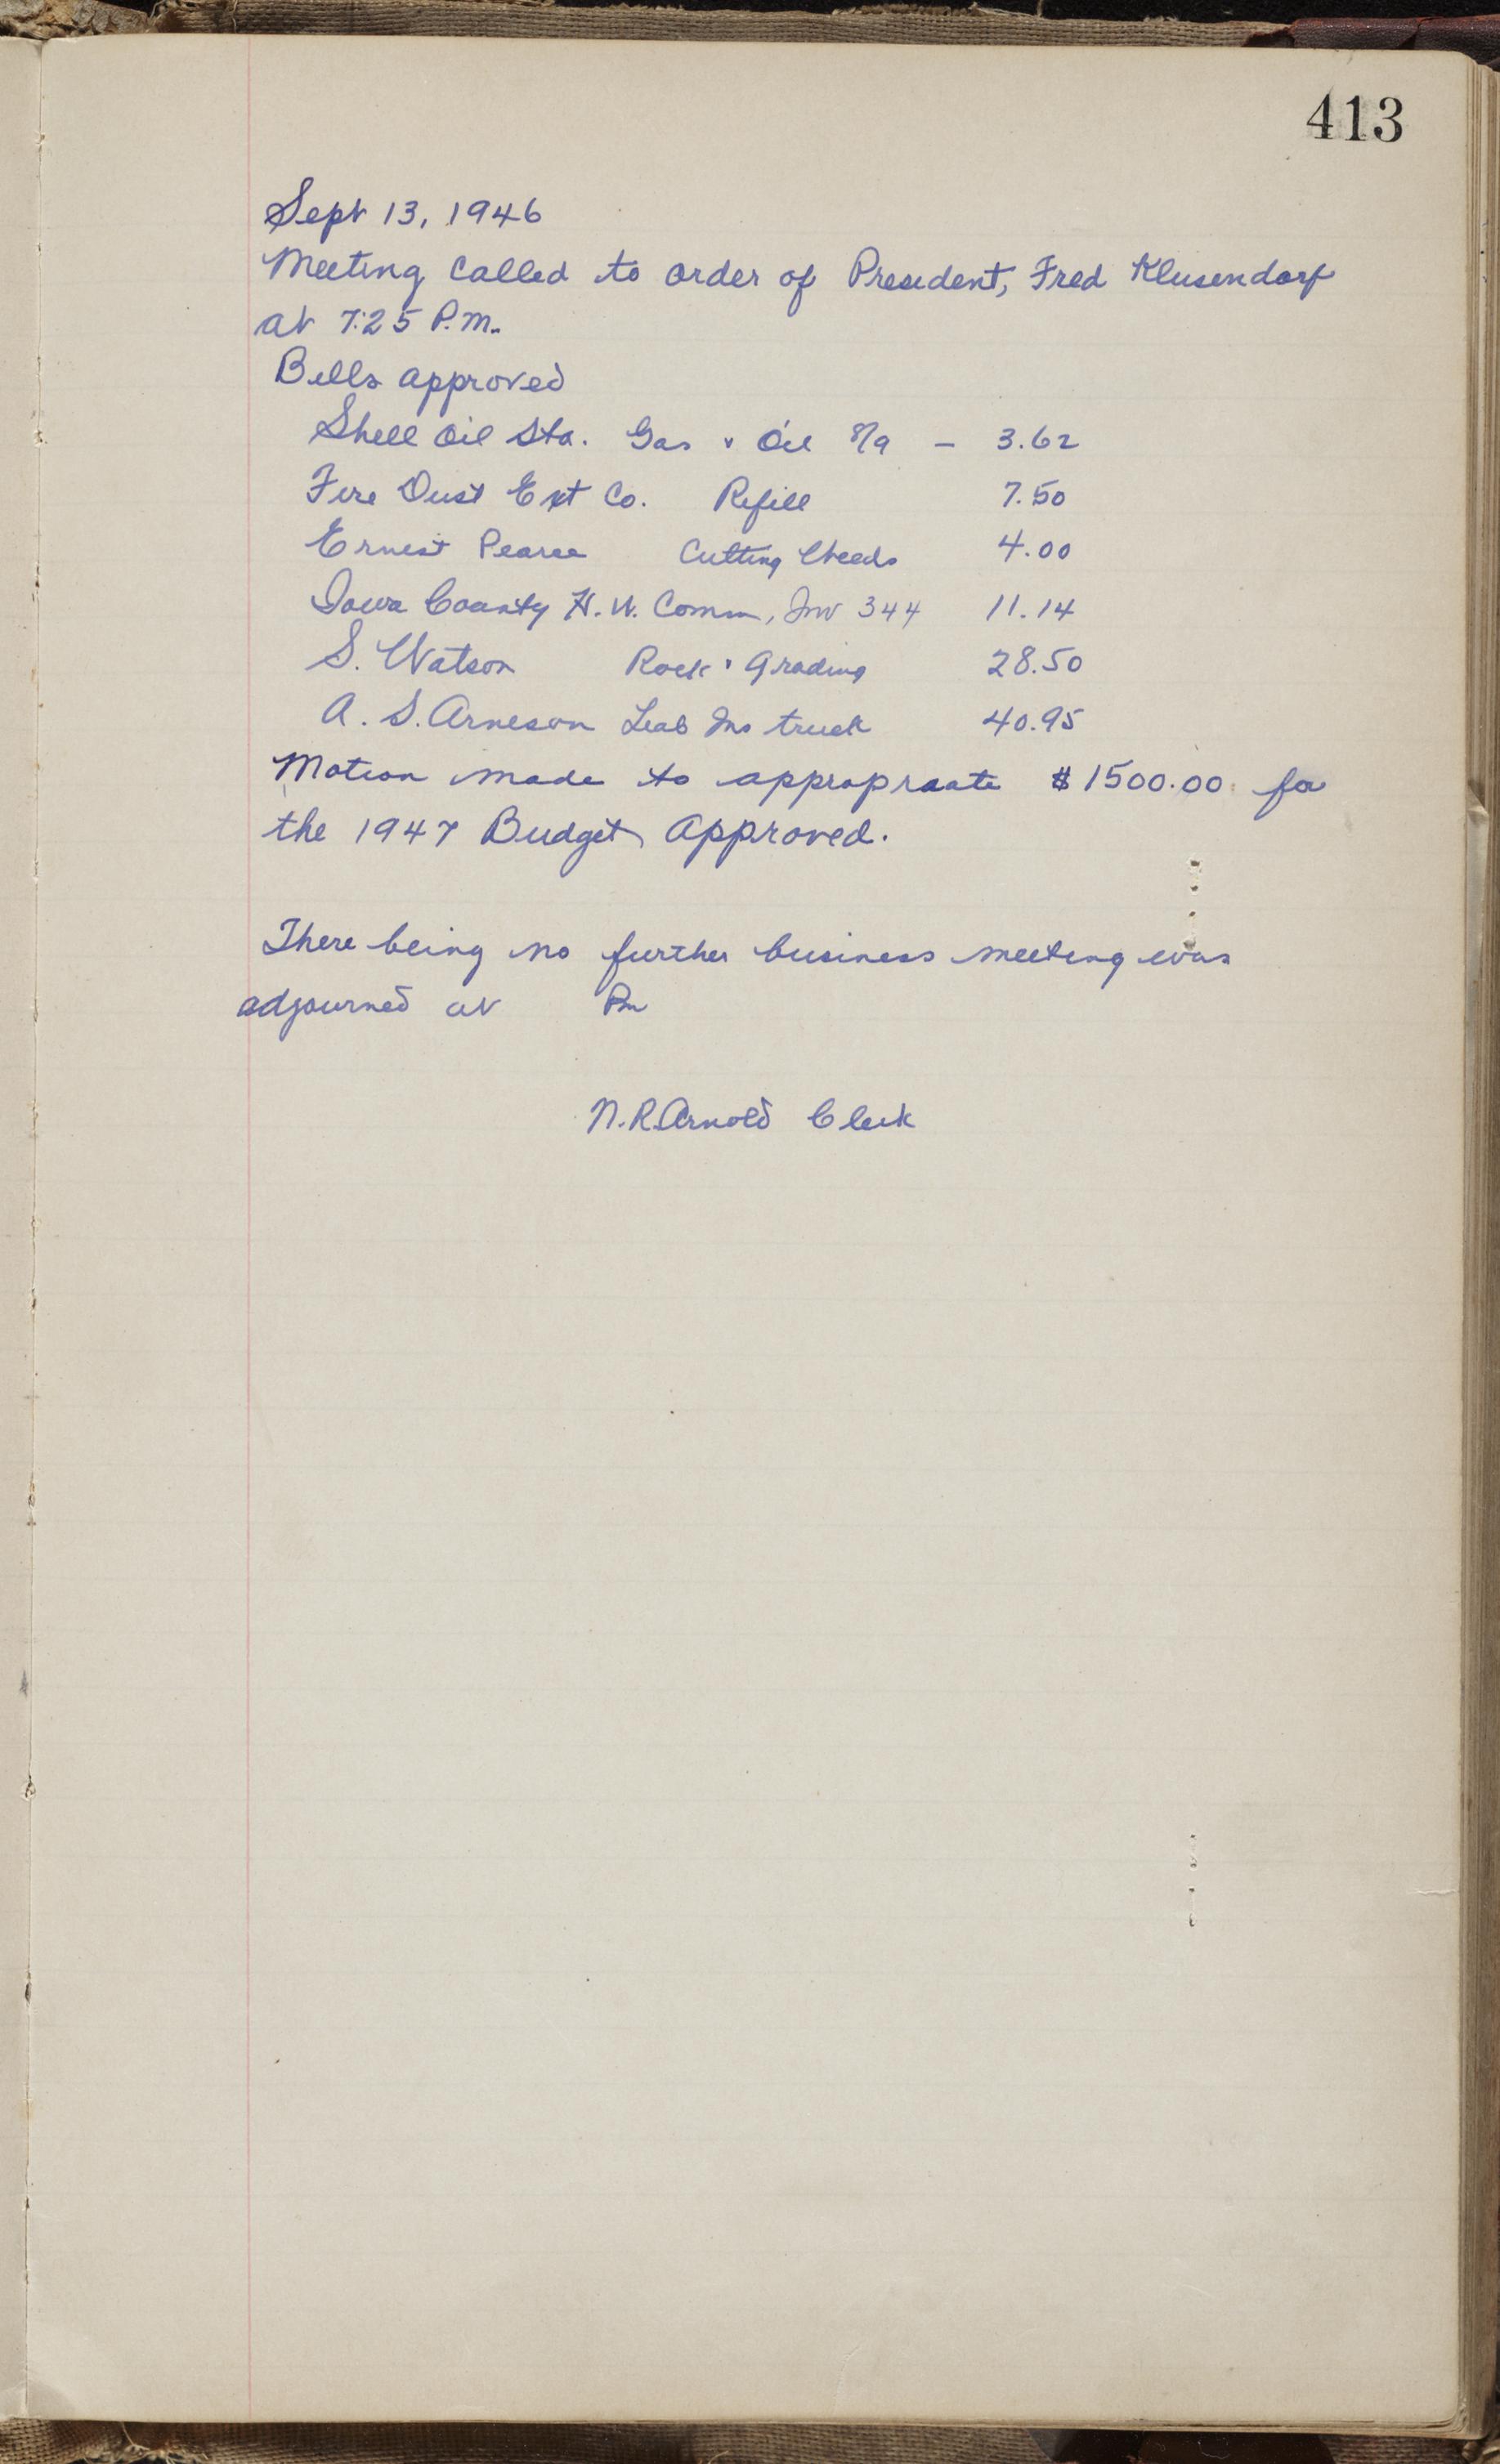 413
Sept 13, 1946
Meeting Called to order of President, Fred Klusendorf
at 7:25 P.M.
Bills approved
Shell Oil Sta. Gas & Oil 8/9 - 3.62
Fire Dust Ext Co. Refill 7.50
Ernest Pearce Cutting Weeds 4.00
Iowa County H.W. Comm, Inv 344 11.14
S. Watson Rock & Grading 28.50
A. S. Arneson Leab Ins truck 40.95
Motion made to appropraate $1500.00 for
the 1947 Budget Approved.
There being no further business meeting was
adjourned at Pm
N.R. Arnold Clerk